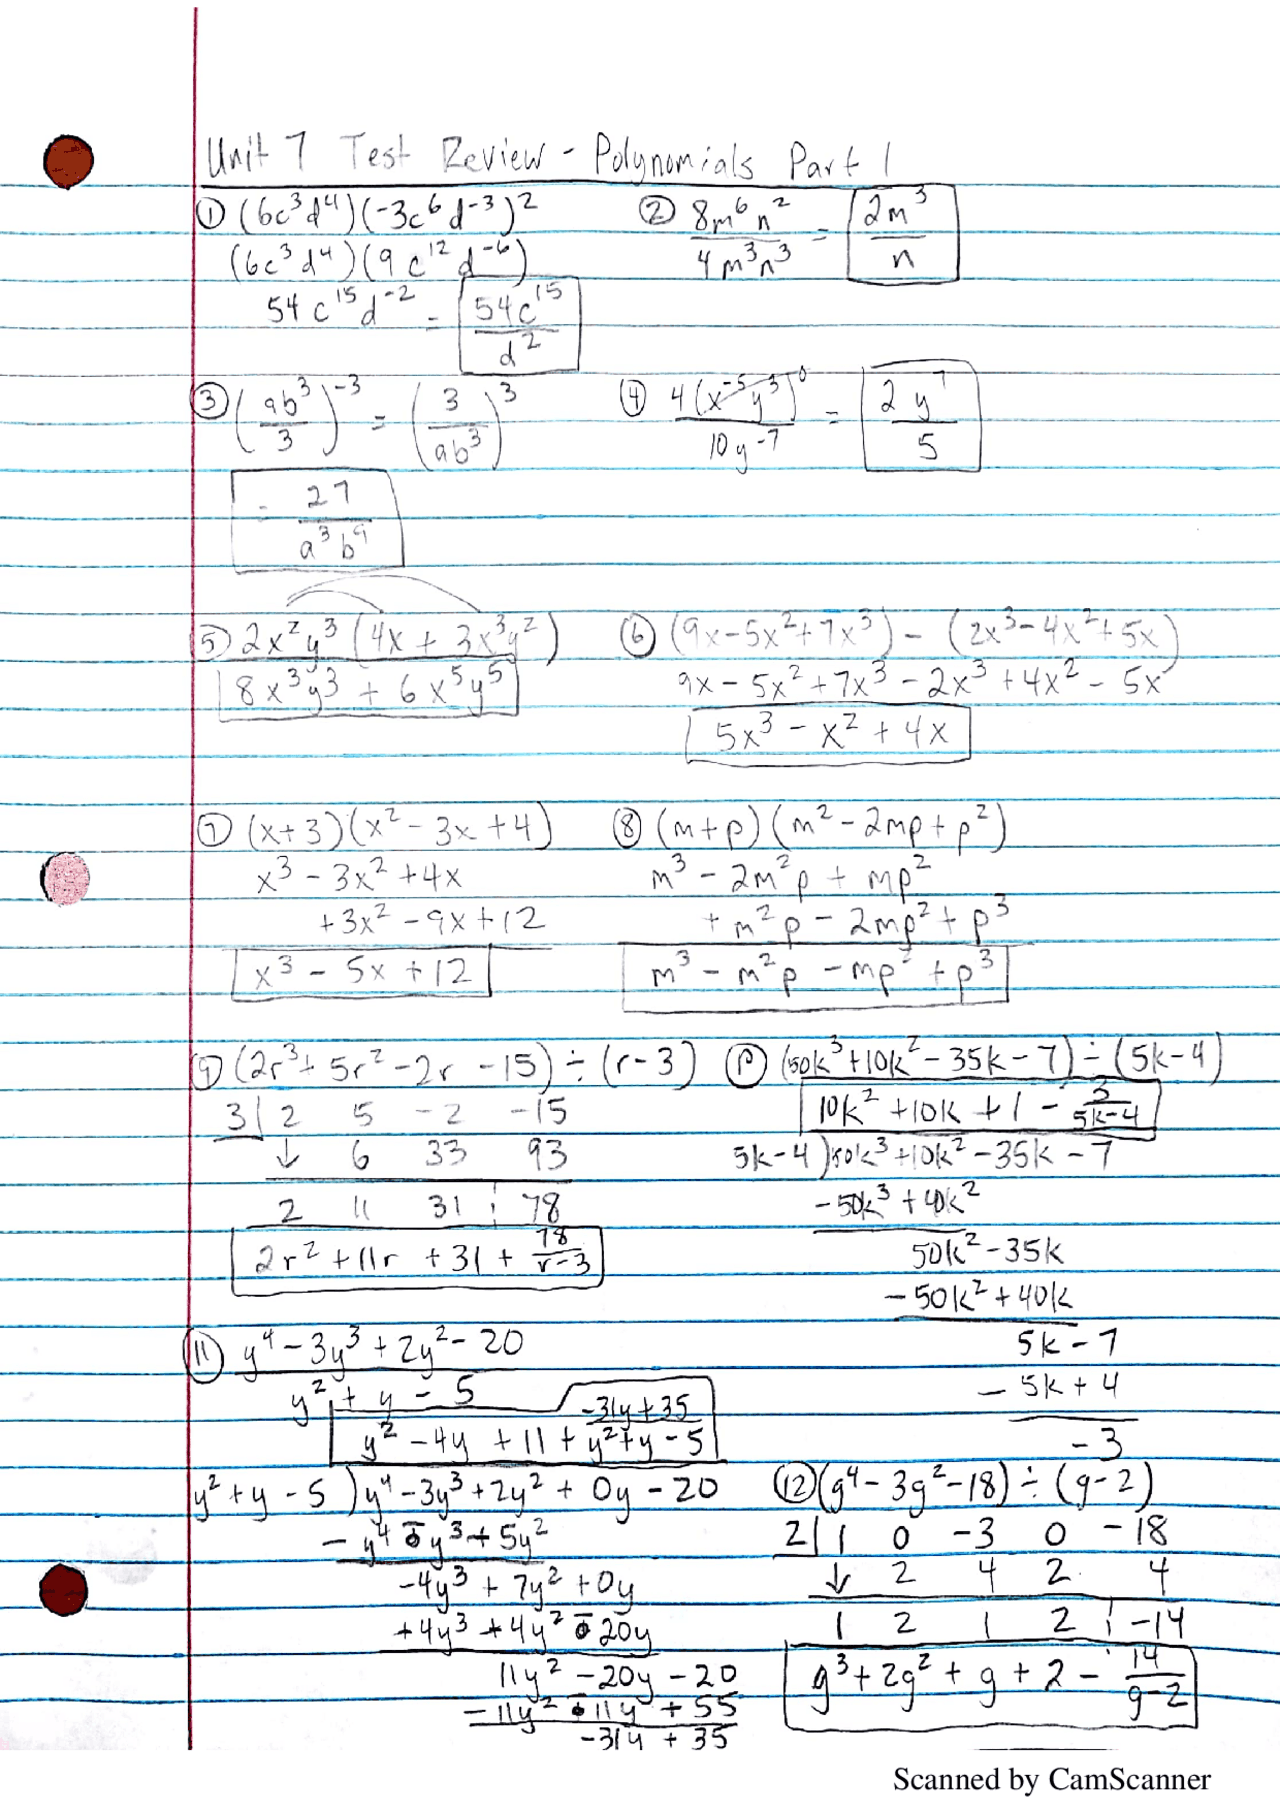 Unit 7 Test Review - Polynomials Part 1
① (6c³d⁴)(-3c⁶d⁻³)²
(6c³d⁴)(9c¹²d⁻⁶)
54c¹⁵d⁻² = 54c¹⁵/d²
② 8m⁶n²/4m³n³ = 2m³/n
③ (ab³/3)⁻³ = (3/ab³)³
= 27/a³b⁹
④ 4(x⁻⁵y³)⁰/10y⁻⁷ = 2y⁷/5
⑤ 2x²y³(4x + 3x³y²)
8x³y³ + 6x⁵y⁵
⑥ (9x-5x²+7x³) - (2x³-4x²+5x)
9x - 5x² + 7x³ - 2x³ + 4x² - 5x
5x³ - x² + 4x
⑦ (x+3)(x² - 3x + 4)
x³ - 3x² + 4x
+3x² - 9x + 12
x³ - 5x + 12
⑧ (m+p)(m² - 2mp + p²)
m³ - 2m²p + mp²
+ m²p - 2mp² + p³
m³ - m²p - mp² + p³
⑨ (2r³ + 5r² - 2r - 15) ÷ (r - 3)
3| 2 5 -2 -15
↓ 6 33 93
2 11 31 ¦ 78
2r² + 11r + 31 + 78/r-3
(50k³+10k² - 35k - 7) ÷ (5k - 4)
10k² + 10k + 1 - 3/5k-4
5k-4 )50k³ + 10k² - 35k - 7
-50k³ + 40k²
50k² - 35k
- 50k² + 40k
5k - 7
- 5k + 4
- 3
⑪ y⁴ - 3y³ + 2y² - 20
y² + y - 5
y² - 4y + 11 + -31y+35/y²+y-5
y² + y - 5 )y⁴ - 3y³ + 2y² + 0y - 20
- y⁴ - y³ + 5y²
-4y³ + 7y² + 0y
+4y³ + 4y² - 20y
11y² - 20y - 20
- 11y² - 11y + 55
-31y + 35
⑫ (g⁴ - 3g² - 18) ÷ (g - 2)
2| 1 0 -3 0 -18
↓ 2 4 2 4
1 2 1 2 ¦ -14
g³ + 2g² + g + 2 - 14/g-2
Scanned by CamScanner